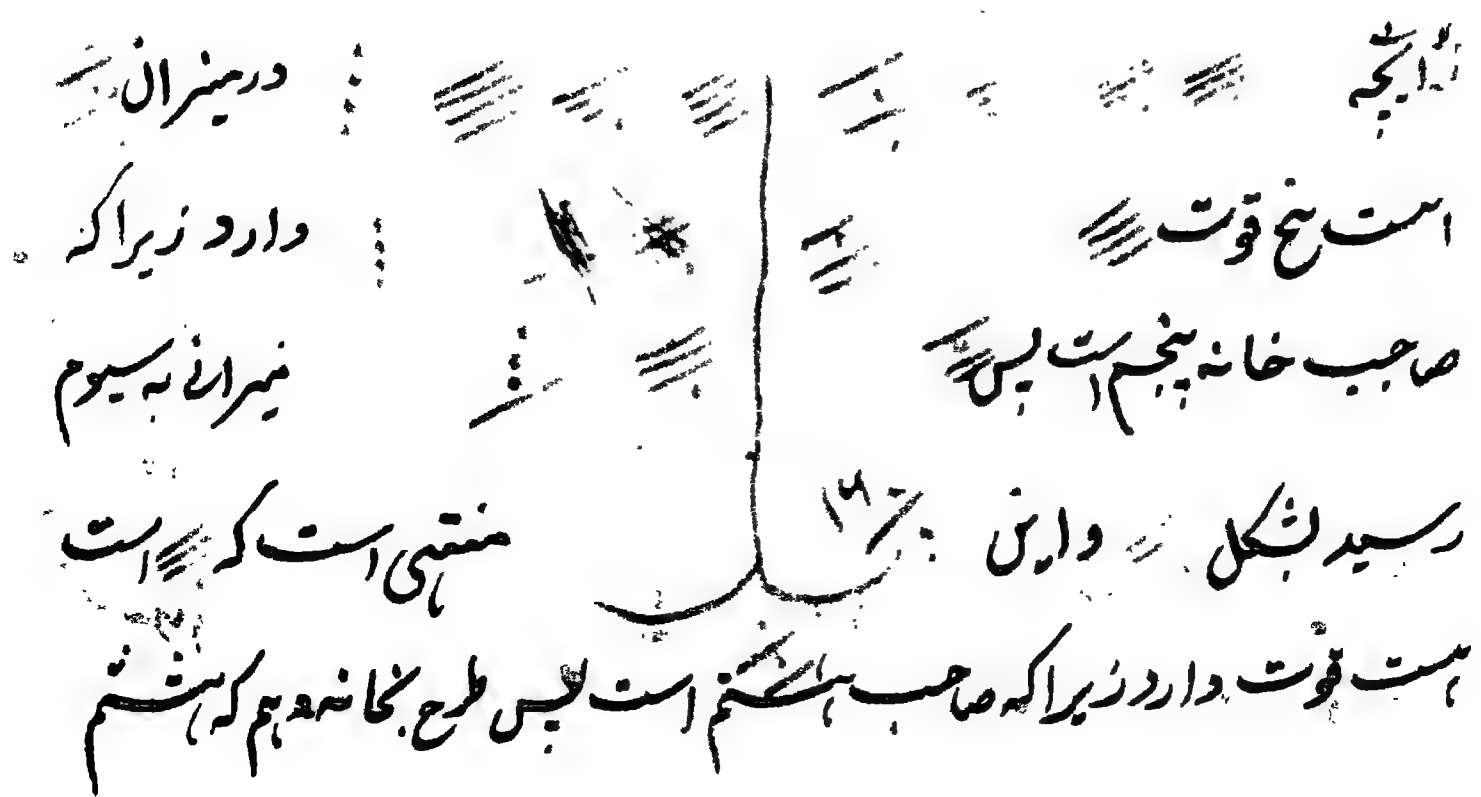 زایچه در میزان
است پنج قوت دارد زیرا که
صاحب خانه پنجم است پس میزانی به سیوم
رسید لشکل واین منتهی است که است
هست قوت دارد زیرا که صاحب هشتم است پس طرح بخانه دهم که هشتم